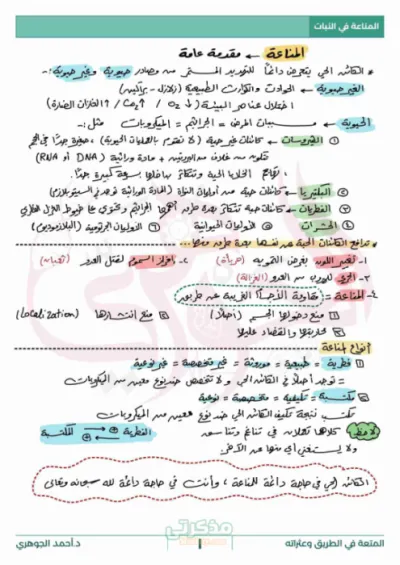 المناعة في النبات
المناعة ← مقدمة عامة
* الكائن الحي يتعرض دائماً للتهديد المستمر من مصادر حيوية وغير حيوية :-
الغير حيوية ← الحوادث والكوارث الطبيعية (زلازل - براكين)
اختلال عناصر البيئة (O₂ ↓ / Co₂ ↑ / الغازات الضارة ↑)
الحيوية ← مسببات المرض = الجراثيم = الميكروبات مثل :-
① الفيروسات ← كائنات غير حية (لا تقوم بالعمليات الحيوية) ، صغيرة جداً في الحجم
تتكون من غلاف من البروتين + مادة وراثية (DNA أو RNA)
تهاجم الخلايا الحية وتتكاثر بداخلها بسرعة كبيرة جداً.
② البكتيريا ← كائنات حية من أوليات النواة (المادة الوراثية توجد في السيتوبلازم)
③ الفطريات ← كائنات حية تتكاثر بعدة طرق أهمها الجراثيم وتحتوي على خيوط الغزل الفطري
④ الحشرات ⑤ الأوليات الحيوانية ⑥ الأوليات الجرثومية (البلازموديوم)
* تدافع الكائنات الحية عن نفسها بعدة طرق منها...
١- تغيير اللون بغرض التمويه (حرباء) ٢- بإفراز السموم لقتل العدو (ثعبان)
٣- الجري للهرب من العدو (الغزالة)
٤- المناعة = (مقاومة الأجسام الغريبة عن طريق
① منع دخولها الجسم (أصلاً) ② منع انتشارها (localization)
③ محاربتها والقضاء عليها
أنواع المناعة
① فطرية = طبيعية = موروثة = غير متخصصة = غير نوعية
= توجد أصلاً في الكائن الحي ولا تتخصص ضد نوع معين من الميكروبات
② مكتسبة = تكيفية = متخصصة = نوعية
تكتسب نتيجة تكيف الكائن الحي ضد نوع معين من الميكروبات
لاحظ كلاهما تعملان في تناغم وتناسق الفطرية ⇄ المكتسبة
ولا يستغني أي منها عن الآخر
الكائن الحي في حاجة دائمة للمناعة ، وأنت في حاجة دائمة لله سبحانه وتعالى
مذكرتي
المتعة في الطريق وعثراته
١
د.أحمد الجوهري